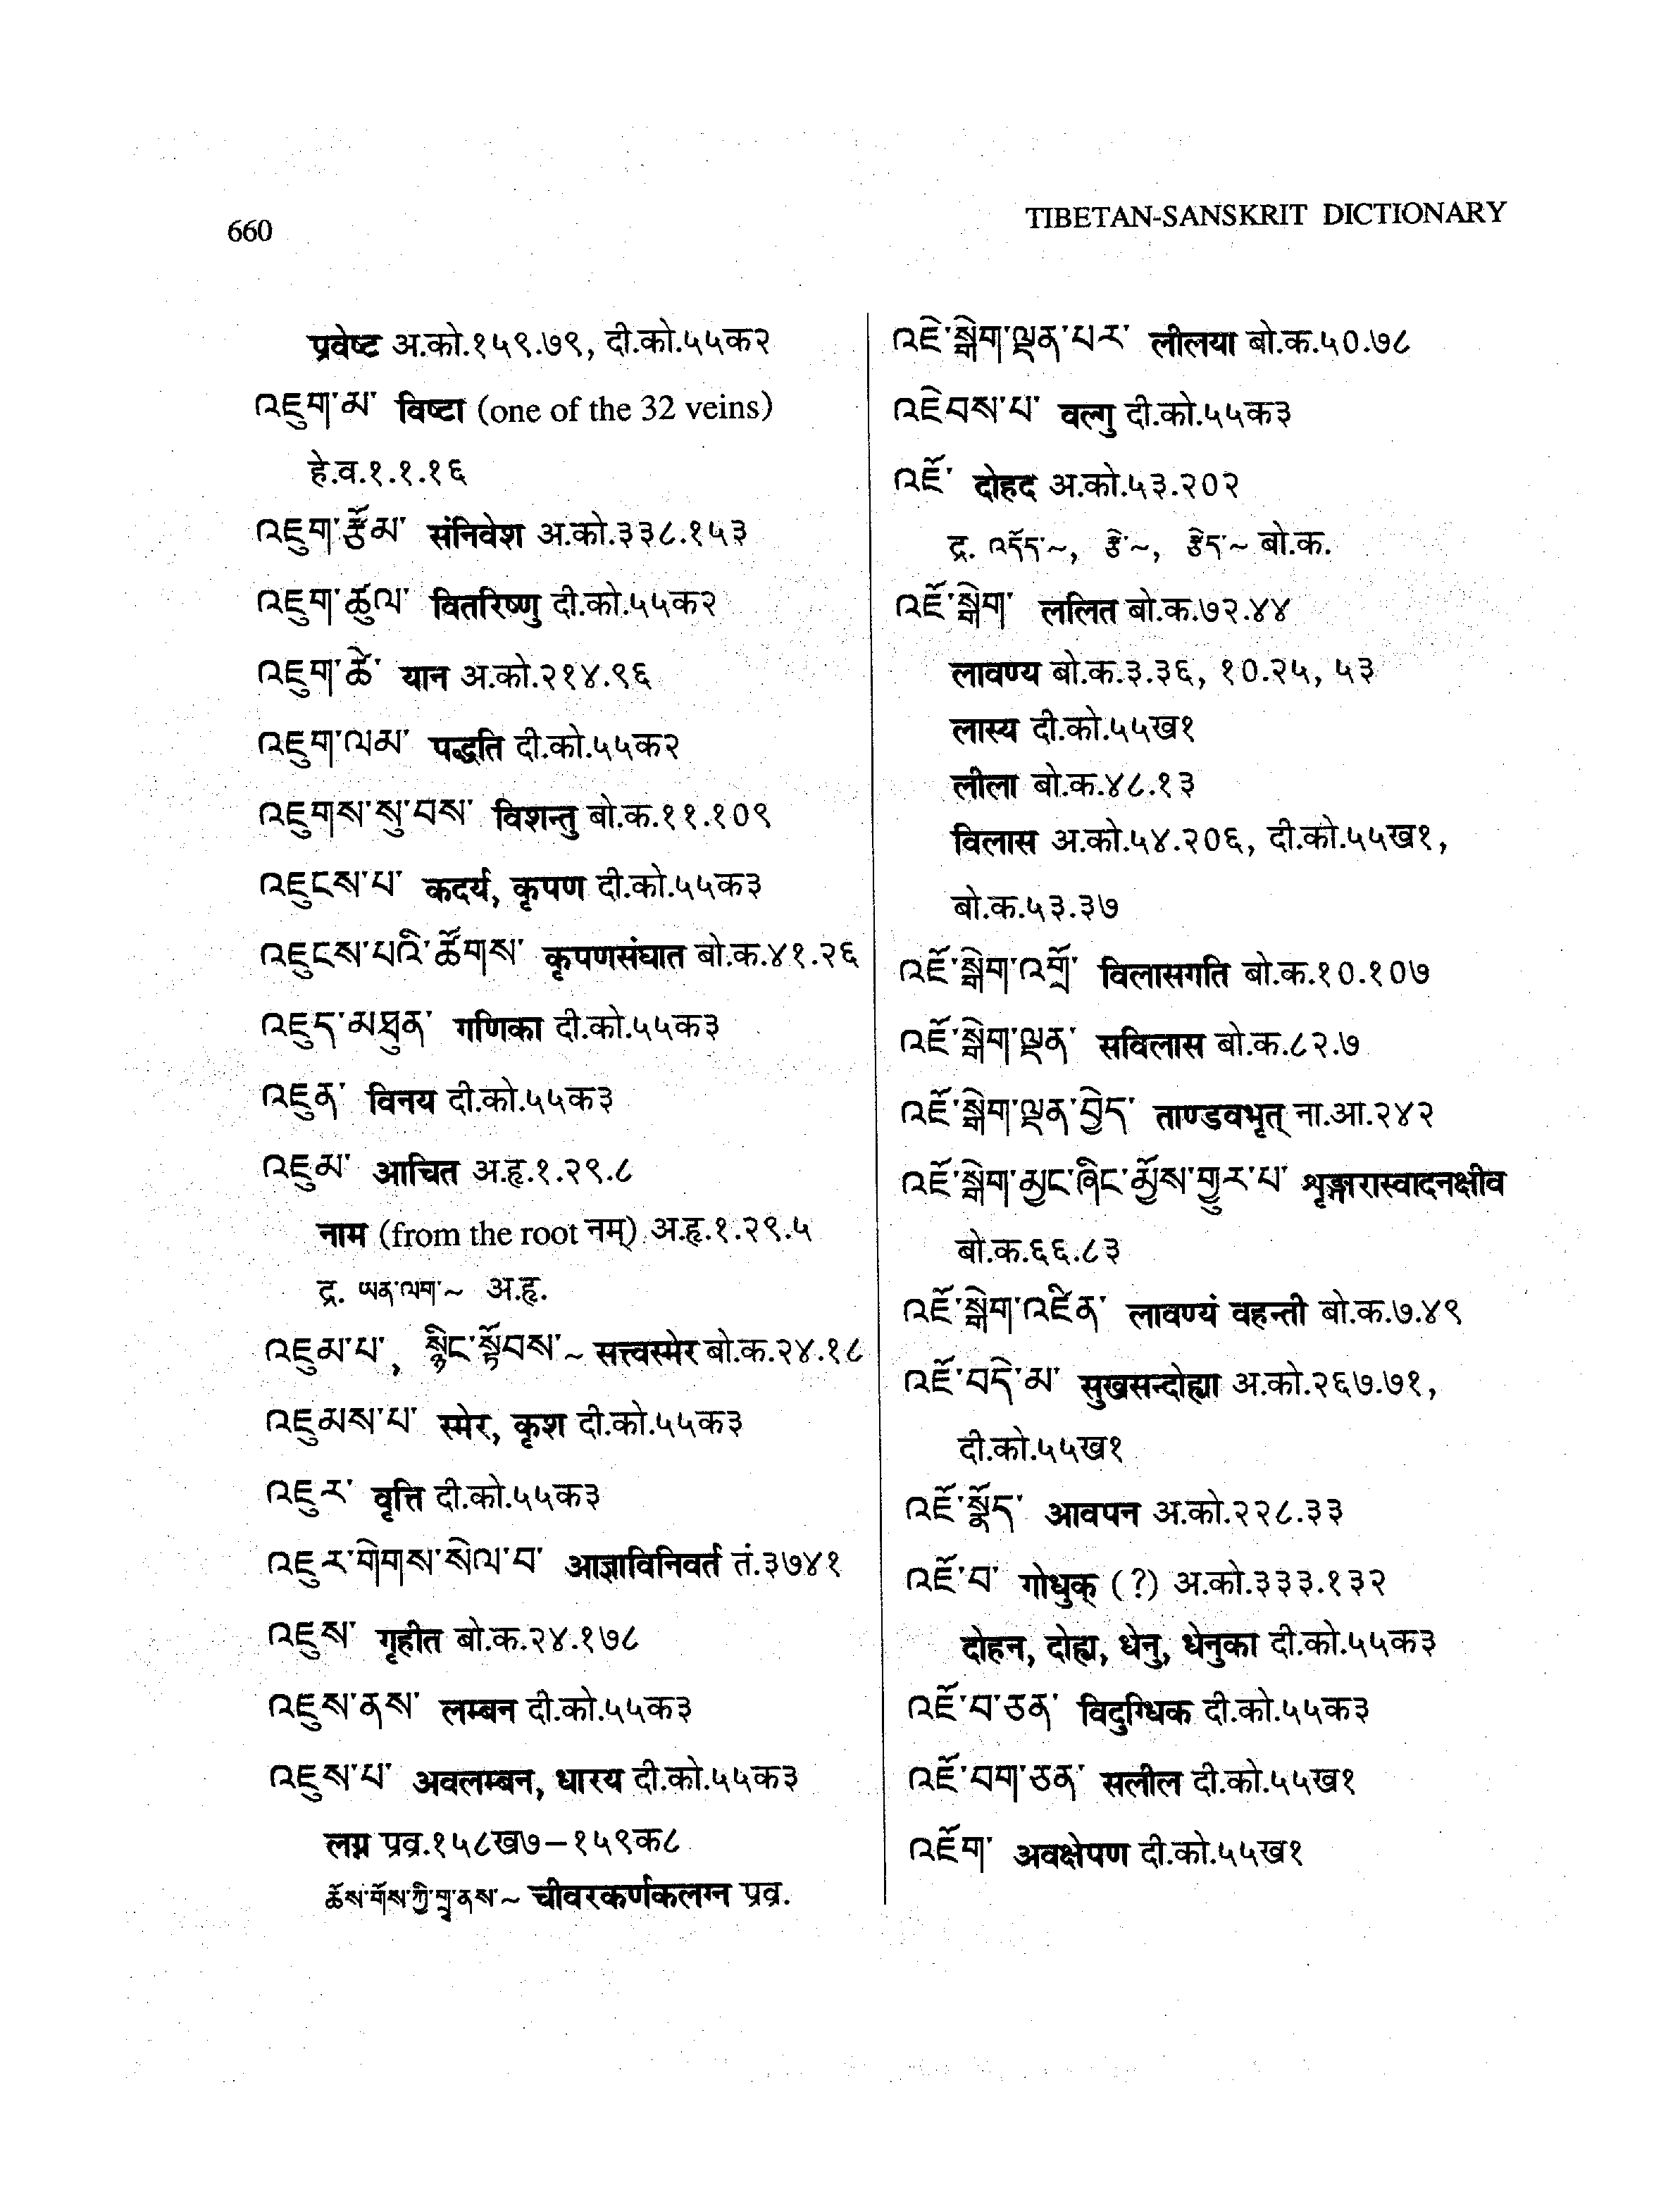 660
TIBETAN-SANSKRIT DICTIONARY
प्रवेष्ट अ.को.१५९.७९, दी.को.५५क२
འཇུག་མ་ विष्टा (one of the 32 veins)
हे.व.१.१.१६
འཇུག་རྩོམ་ संनिवेश अ.को.३३८.१५३
འཇུག་ཚུལ་ वितरिष्णु दी.को.५५क२
འཇུག་ཚེ་ यान अ.को.२१४.९६
འཇུག་ལམ་ पद्धति दी.को.५५क२
འཇུགས་སུ་བས་ विशन्तु बो.क.११.१०९
འཇུངས་པ་ कदर्य, कृपण दी.को.५५क३
འཇུངས་པའི་ཚོགས་ कृपणसंघात बो.क.४१.२६
འཇུད་མཐུན་ गणिका दी.को.५५क३
འཇུན་ विनय दी.को.५५क३
འཇུམ་ आचित अ.हृ.१.२९.८
नाम (from the root नम्) अ.हृ.१.२९.५
द्र. ཡན་ལག་~ अ.हृ.
འཇུམ་པ་, སྙིང་སྟོབས་~ सत्त्वस्मेर बो.क.२४.१८
འཇུམས་པ་ स्मेर, कृश दी.को.५५क३
འཇུར་ वृत्ति दी.को.५५क३
འཇུར་གེགས་སེལ་བ་ आज्ञाविनिवर्त तं.३७४१
འཇུས་ गृहीत बो.क.२४.१७८
འཇུས་ནས་ लम्बन दी.को.५५क३
འཇུས་པ་ अवलम्बन, धारय दी.को.५५क३
लग्न प्रव्र.१५८ख७–१५९क८
ཆོས་གོས་ཀྱི་གྲྭ་ནས་~ चीवरकर्णकलग्न प्रव्र.
འཇེ་སྒེག་ལྡན་པར་ लीलया बो.क.५०.७८
འཇེབས་པ་ वल्गु दी.को.५५क३
འཇོ་ दोहद अ.को.५३.२०२
द्र. འདོད་~, རྩེ་~, རྩེད་~ बो.क.
འཇོ་སྒེག་ ललित बो.क.७२.४४
लावण्य बो.क.३.३६, १०.२५, ५३
लास्य दी.को.५५ख१
लीला बो.क.४८.१३
विलास अ.को.५४.२०६, दी.को.५५ख१,
बो.क.५३.३७
འཇོ་སྒེག་འགྲོ་ विलासगति बो.क.१०.१०७
འཇོ་སྒེག་ལྡན་ सविलास बो.क.८२.७
འཇོ་སྒེག་ལྡན་བྱེད་ ताण्डवभृत् ना.आ.२४२
འཇོ་སྒེག་མྱང་ཞིང་མྱོས་གྱུར་པ་ शृङ्गारास्वादनक्षीव
बो.क.६६.८३
འཇོ་སྒེག་འཛིན་ लावण्यं वहन्ती बो.क.७.४९
འཇོ་བདེ་མ་ सुखसन्दोह्या अ.को.२६७.७१,
दी.को.५५ख१
འཇོ་སྣོད་ आवपन अ.को.२२८.३३
འཇོ་བ་ गोधुक् (?) अ.को.३३३.१३२
दोहन, दोह्य, धेनु, धेनुका दी.को.५५क३
འཇོ་བ་ཅན་ विदुग्धिक दी.को.५५क३
འཇོ་བག་ཅན་ सलील दी.को.५५ख१
འཇོག་ अवक्षेपण दी.को.५५ख१